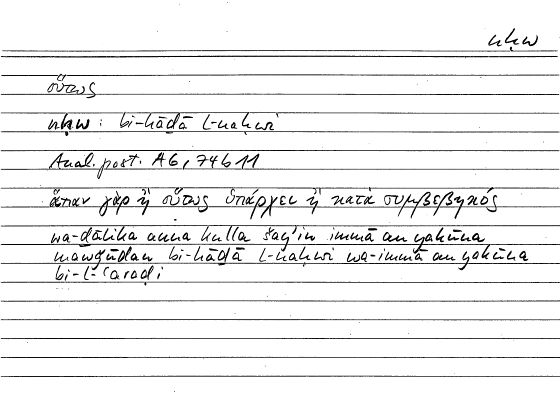 nḥw
οὕτως
nḥw : bi-hāḏā l-naḥwi
Anal. post. A6, 74b11
ἅπαν γὰρ ἢ οὕτως ὑπάρχει ἢ κατὰ συμβεβηκός
wa-ḏālika anna kulla šayʾin immā an yakūna
mawǧūdan bi-hāḏā l-naḥwi wa-immā an yakūna
bi-l-ʿaraḍi